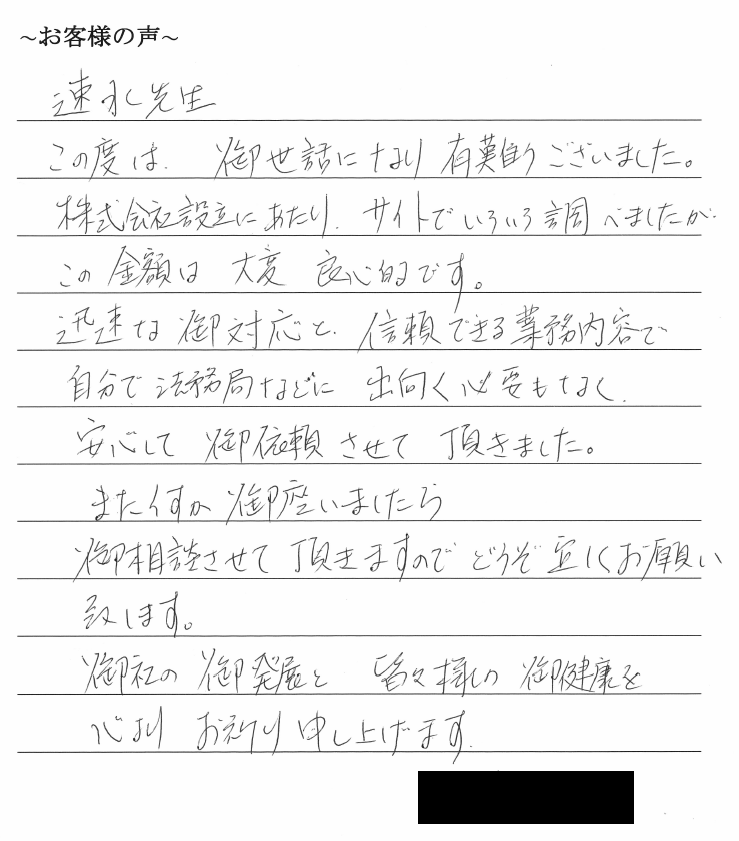 ~お客様の声~
速水先生
この度は、御世話になり有難うございました。
株式会社設立にあたり、サイトでいろいろ調べましたが
この金額は大変良心的です。
迅速な御対応と、信頼できる業務内容で
自分で法務局などに出向く必要もなく、
安心して御依頼させて頂きました。
また何か御座いましたら
御相談させて頂きますのでどうぞ宜しくお願い
致します。
御社の御発展と皆々様の御健康を
心よりお祈り申し上げます。